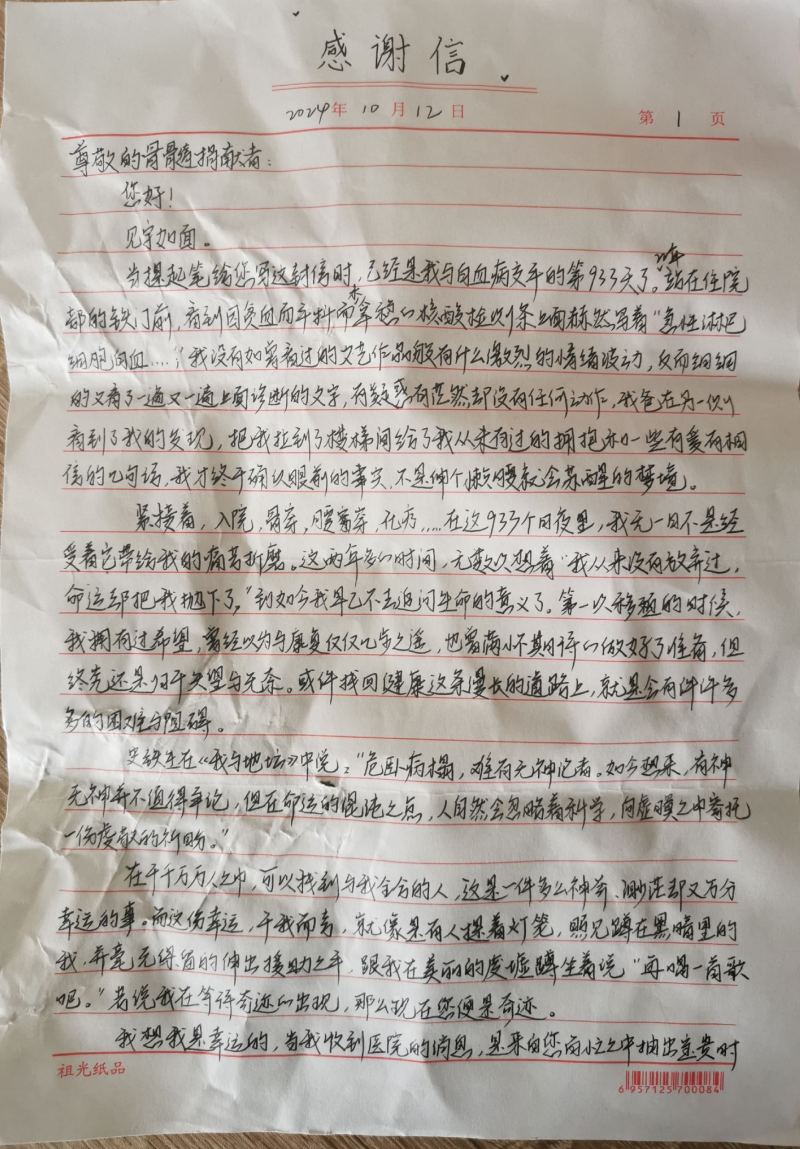 感谢信
2024年10月12日 第1页
尊敬的骨髓捐献者：
您好！
见字如面。
当提起笔给您写这封信时，已经是我与白血病交手的第933天了。站在住院
部的铁门前，看到因贫血而手抖而拿稳的核酸检测条上面赫然写着“急性淋巴
细胞白血……”我没有如曾看过的文艺作品般有什么激烈的情绪波动，反而细细
的又看了一遍又一遍上面诊断的文字，有疑惑有茫然却没有任何动作，我爸在另一侧
看到了我的发现，把我拉到了楼梯间给了我从未有过的拥抱和一些有爱有相
信的几句话，我才终于确认眼前的事实，不是伸个懒腰就会苏醒的梦境。
紧接着，入院，骨穿，腰穿，化疗……在这933个日夜里，我无一日不是经
受着它带给我的痛苦折磨。这两年多的时间，无数次想着“我从来没有放弃过，
命运却把我抛下了。”到如今我早已不去追问生命的意义了。第一次移植的时候，
我拥有过希望，曾经以为与康复仅仅几步之遥，也曾满怀期许的做好了准备，但
终究还是归于失望与无奈。或许找回健康这条漫长的道路上，就是会有许许多
多的困难与阻碍。
史铁生在《我与地坛》中说：“危卧病榻，难有无神论者。如今想来，有神
无神并不值得争论，但在命运的混沌之点，人自然会忽略着科学，向虚暝之中寄托
一份虔敬的祈盼。”
在千千万万人之中，可以找到与我全合的人，这是一件多么神奇、渺茫却又万分
幸运的事。而这份幸运，于我而言，就像是有人提着灯笼，照见蹲在黑暗里的
我，并毫无保留的伸出援助之手，跟我在美丽的废墟蹲坐着说“再唱一首歌
吧。”若说我在等许奇迹的出现，那么现在您便是奇迹。
我想我是幸运的，当我收到医院的消息，是来自您百忙之中抽出宝贵时
祖光纸品
6957125700084